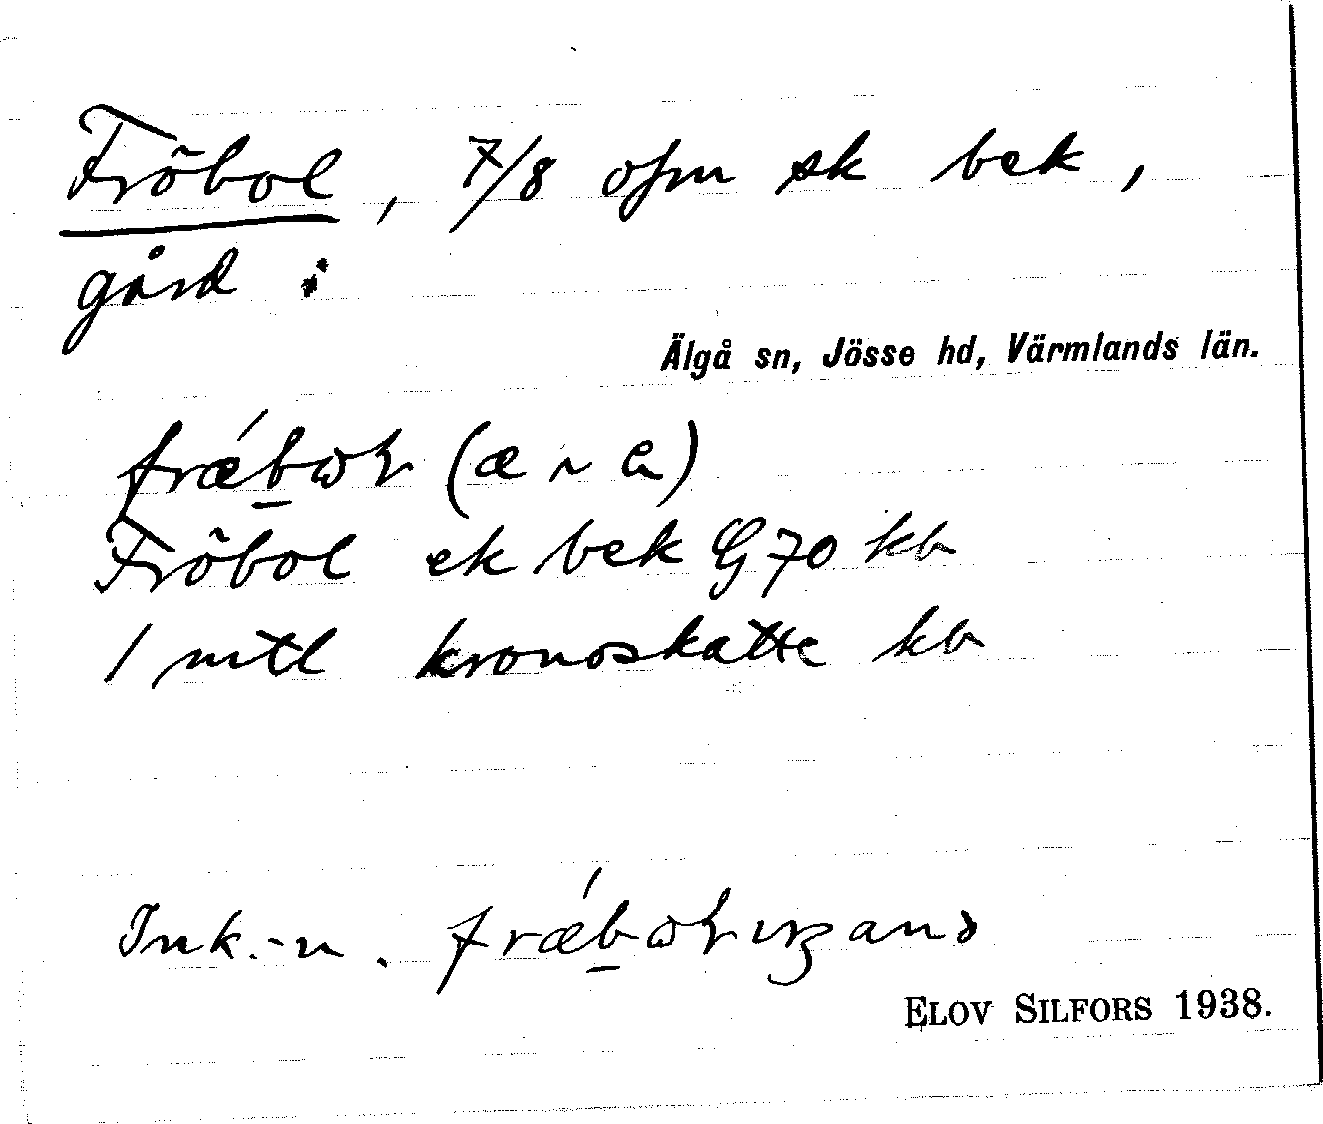 Fröbol, 7/8 ofm sk bek,
gård i
Älgå sn, Jösse hd, Värmlands län.
(æ ~
Fröbol ek bek G 70 kb
1 mtl kronoskatte kb
Ink.-n.
ELOV SILFORS 1938.